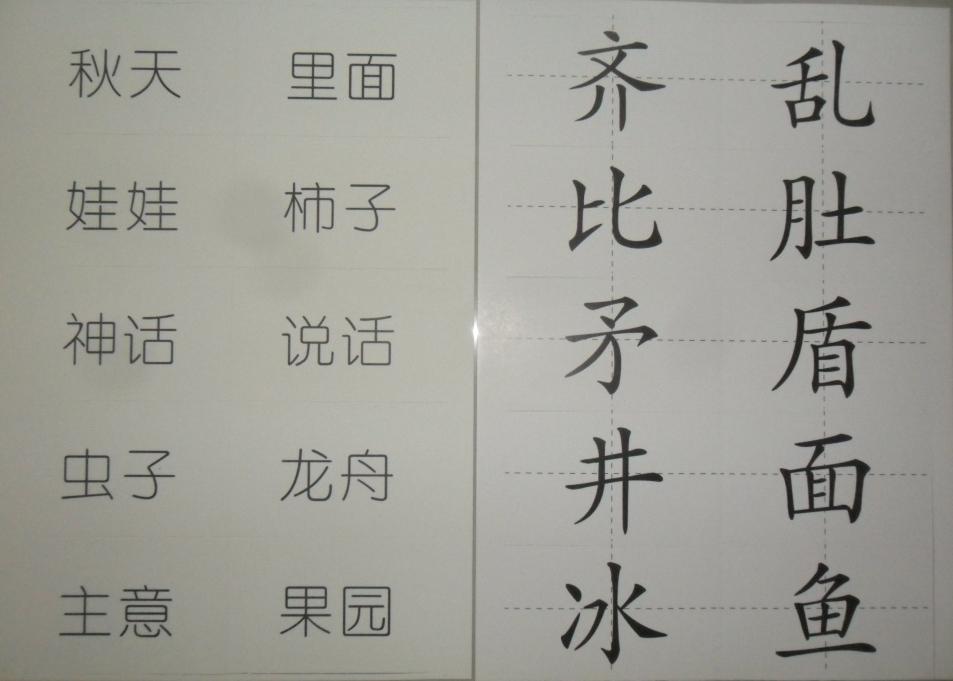 秋天 里面
娃娃 柿子
神话 说话
虫子 龙舟
主意 果园
齐 乱
比 肚
矛 盾
井 面
冰 鱼